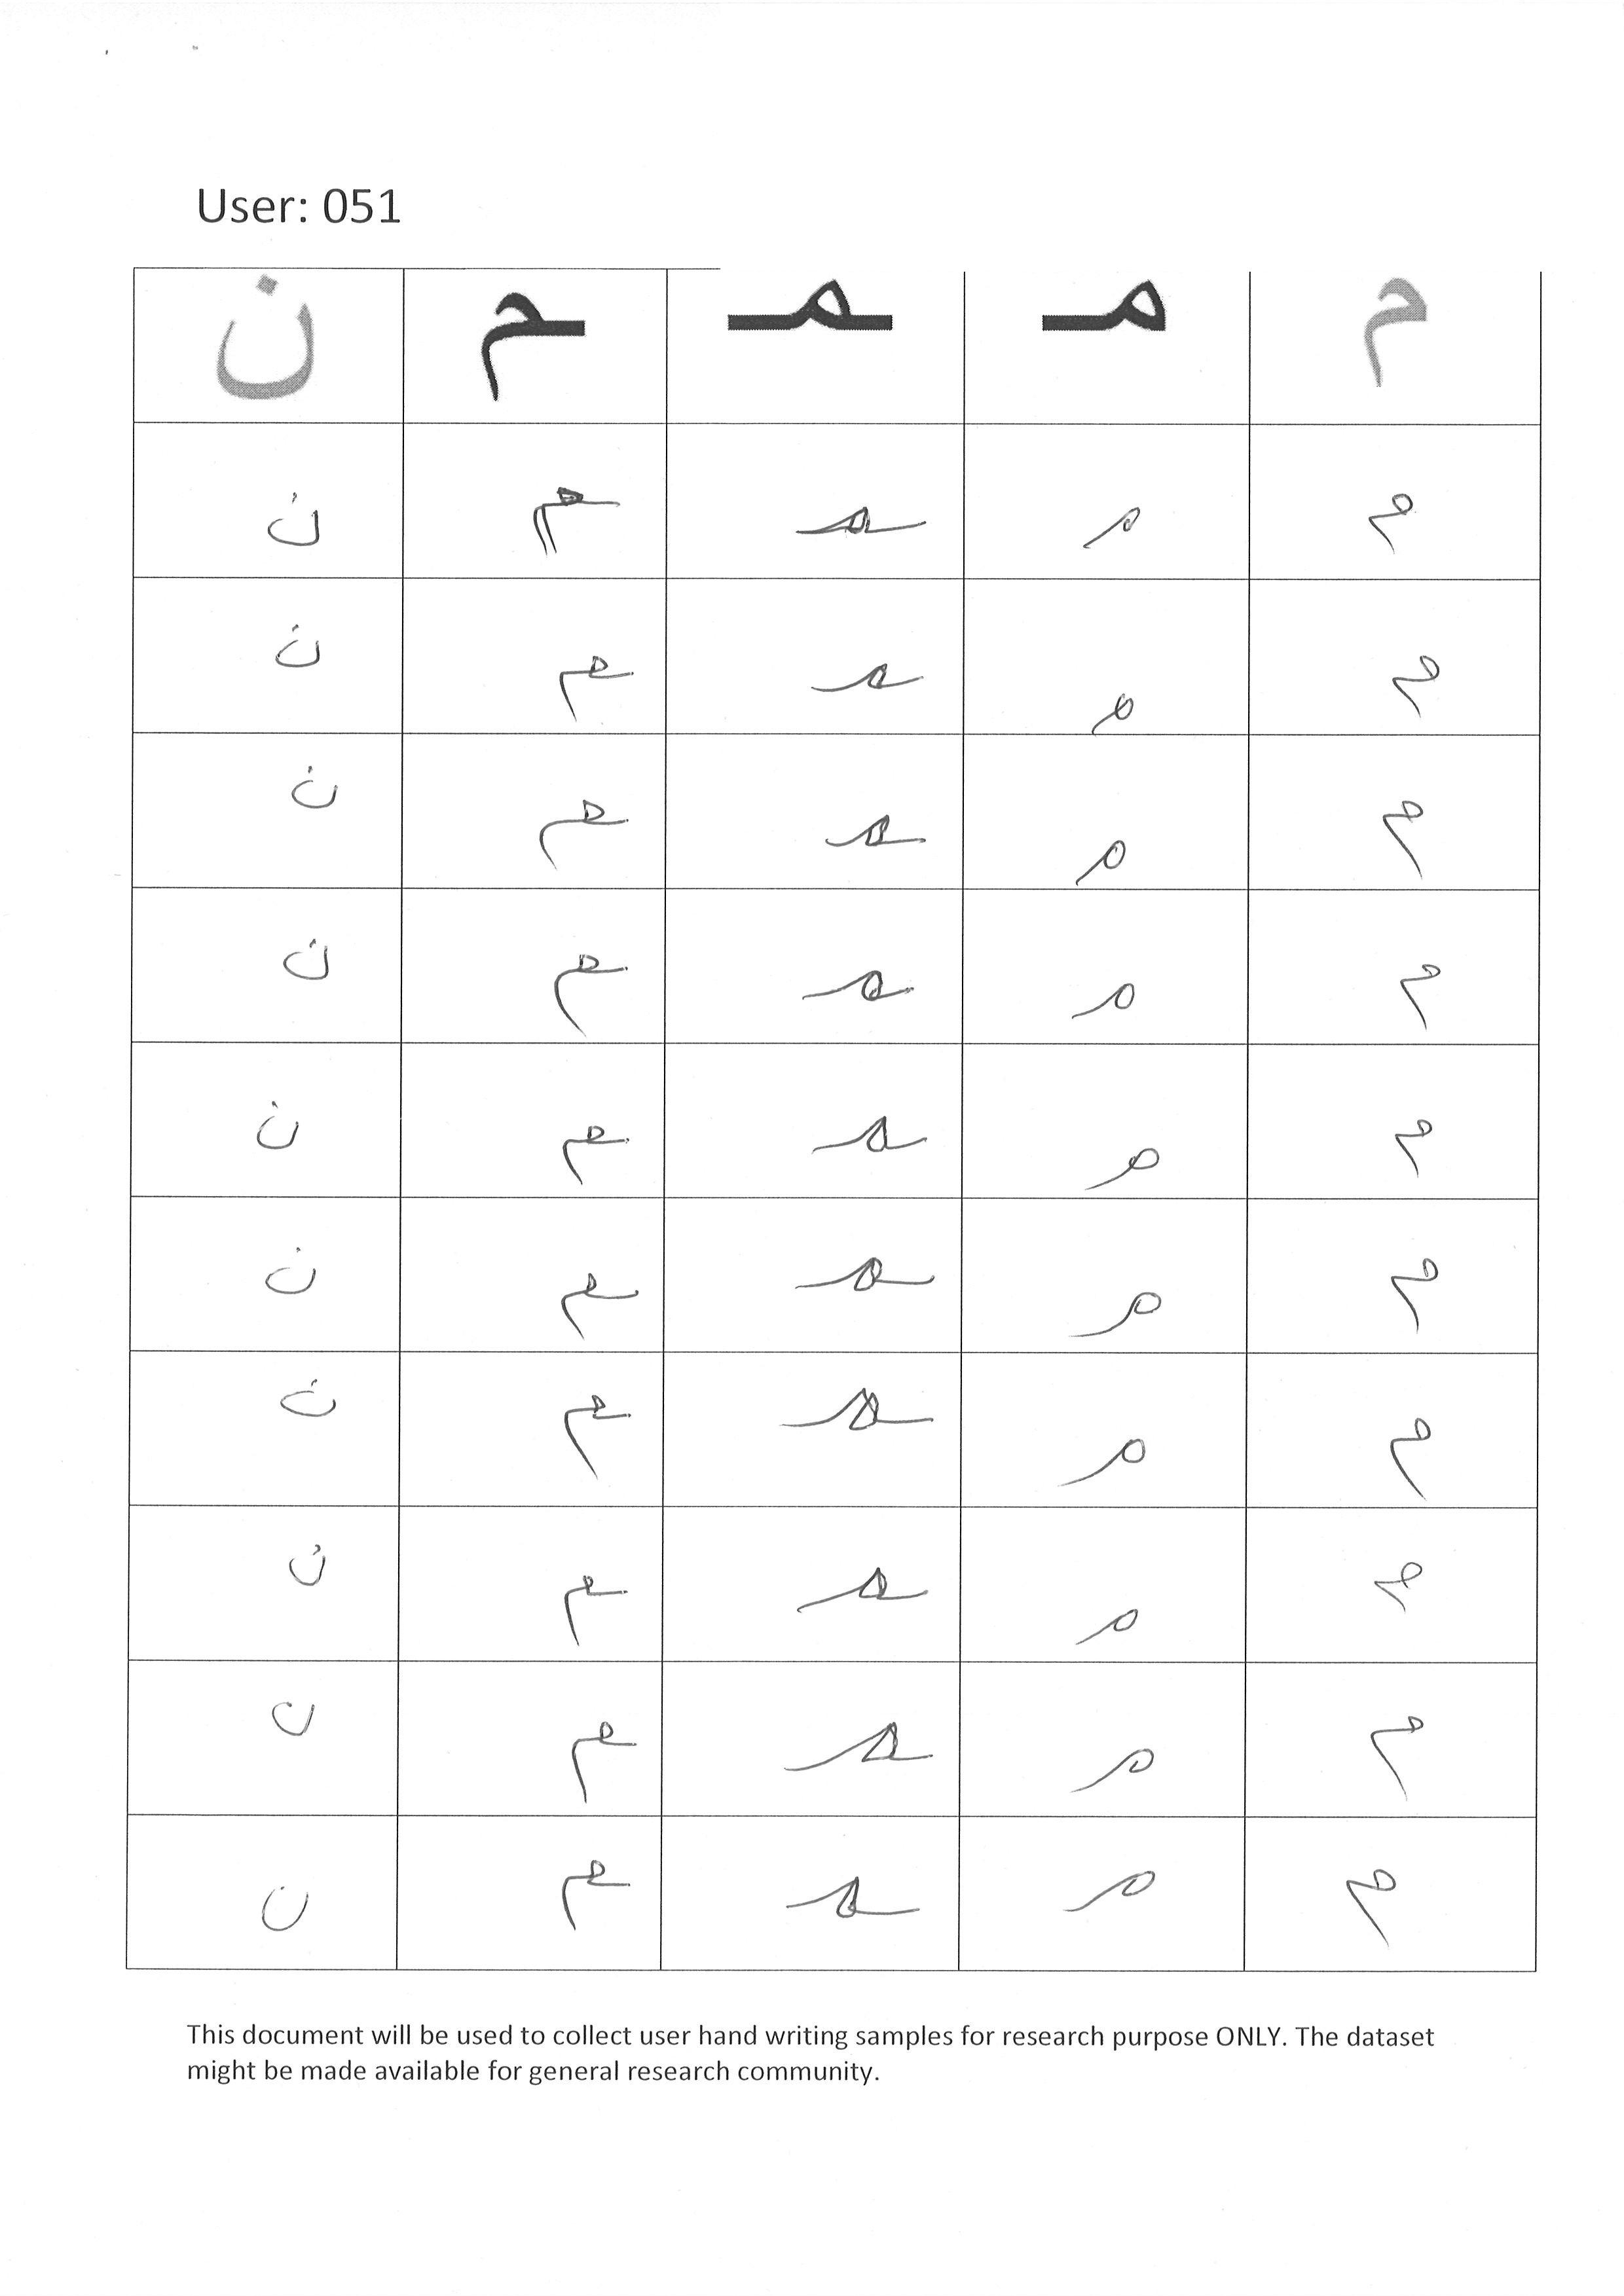 User: 051
م مـ ـمـ ـم ن
م مـ ـمـ ـم ن
م مـ ـمـ ـم ن
م مـ ـمـ ـم ن
م مـ ـمـ ـم ن
م مـ ـمـ ـم ن
م مـ ـمـ ـم ن
م مـ ـمـ ـم ن
م مـ ـمـ ـم ن
م مـ ـمـ ـم ں
م مـ ـمـ ـم ں
This document will be used to collect user hand writing samples for research purpose ONLY. The dataset
might be made available for general research community.